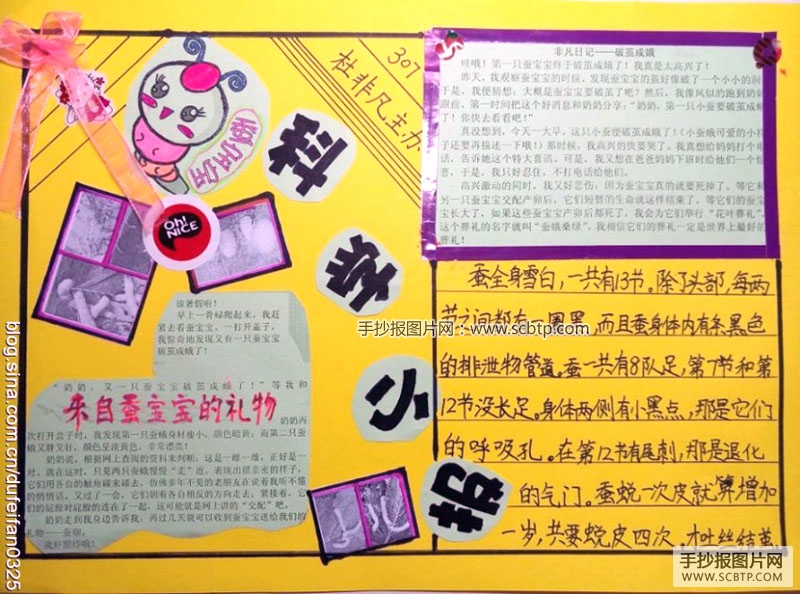 307
杜非凡主办
蚕宝宝
Oh!
NICE
非凡日记——破茧成蛾
哇哦！第一只蚕宝宝终于破茧成蛾了！我真是太高兴了！
昨天，我观察蚕宝宝的时候，发现蚕宝宝的茧好像破了一个小小的洞
于是，我便猜想：大概是蚕宝宝要破茧了吧？然后，我像风似的跑到奶奶
跟前，第一时间把这个好消息和奶奶分享：“奶奶，第一只小蚕要破茧成蛾了
！你快去看看吧！”
真没想到，今天一大早，这只小蚕便破茧成蛾了！（小蚕蛾可爱的小样
子还要再描述一下哦！）那时候，我高兴的快要哭了。我真想给奶奶打个电
话，告诉她这个特大喜讯，可是，我又想在爸爸妈妈下班时给他们一个惊
喜，于是，我只好忍住，不打电话给他们。
高兴激动的同时，我又好悲伤：因为蚕宝宝真的就要死掉了。等它和
另一只蚕宝宝交配产卵后，它们短暂的生命就这样结束了。等它们的蚕宝
宝长大了，如果这些蚕宝宝产卵后都死了，我会为它们举行“花叶葬礼”。
这个葬礼的名字就叫“蚕蛾桑绿”。我相信它们的葬礼一定是世界上最好的
葬礼！
蚕全身雪白，一共有13节。除了头部，每两
节之间都有一圈黑，而且蚕身体内有条黑色
的排泄物管道。蚕一共有8队足，第7节和第
12节没长足。身体两侧有小黑点，那是它们
的呼吸孔。在第12节有尾刺，那是退化
的气门。蚕蜕一次皮就算增加
一岁，共要蜕皮四次，吐丝结茧
放暑假啦！
早上一骨碌爬起来，我赶
紧去看蚕宝宝，一打开盖子，
我惊奇地发现又有一只蚕宝宝
破茧成蛾了！
“奶奶，又一只蚕宝宝破茧成蛾了！”等我和
来自蚕宝宝的礼物
奶奶再
次打开盒子时，我发现第一只蚕蛾身材瘦小，颜色暗黄；而第二只蚕
蛾又胖又壮，颜色呈淡黄色，非常漂亮！
奶奶说，根据网上查阅的资料来判断：这是一雌一雄，正好是一
对。就在这时，只见两只蚕蛾慢慢“走”近，表现出很亲密的样子，
它们用各自的触角碰来碰去，仿佛多年不见的老朋友在说着听不懂
的悄悄话。又过了一会，它们朝着各自相反的方向走去；紧接着，它
们的屁股对屁股的连在了一起，这可能就是网上讲的“交配”吧。
奶奶走到我身边告诉我，再过几天就可以收到蚕宝宝送给我们的
礼物——蚕卵。
我好期待哦！
手抄报图片网：www.scbtp.com
blog.sina.com.cn/dufeifan0325
手抄报图片网
WWW.SCBTP.COM